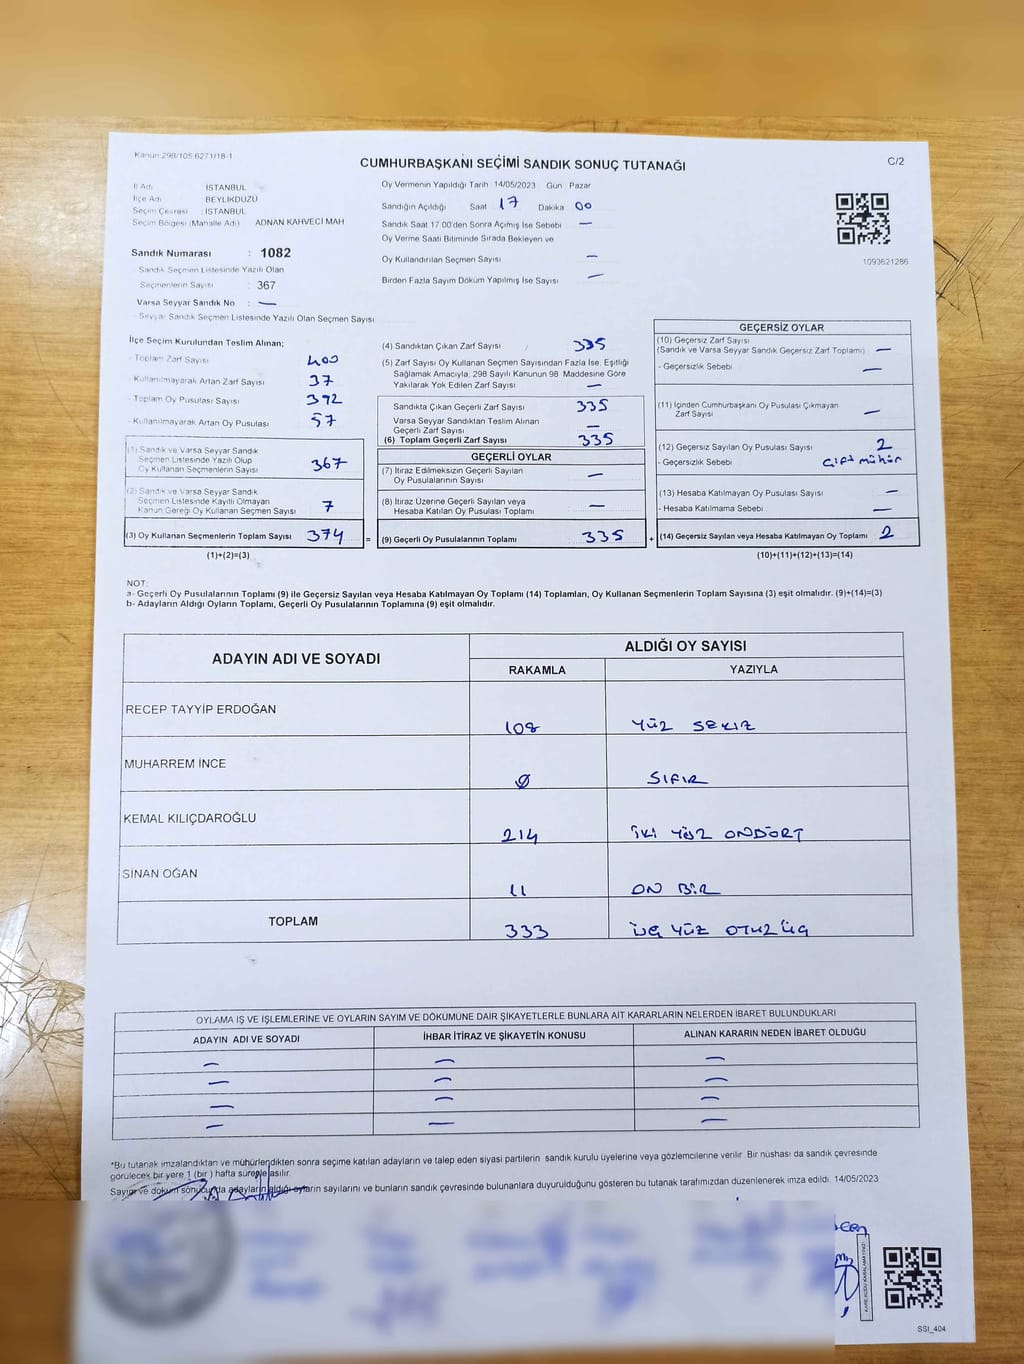 Kanun:298/105 6271/18-1
CUMHURBAŞKANI SEÇİMİ SANDIK SONUÇ TUTANAĞI
C/2
İl Adı : İSTANBUL
İlçe Adı : BEYLİKDÜZÜ
Seçim Çevresi : İSTANBUL
Seçim Bölgesi (Mahalle Adı) : ADNAN KAHVECİ MAH
Sandık Numarası : 1082
Sandık Seçmen Listesinde Yazılı Olan
Seçmenlerin Sayısı : 367
Varsa Seyyar Sandık No : —
Seyyar Sandık Seçmen Listesinde Yazılı Olan Seçmen Sayısı
Oy Vermenin Yapıldığı Tarih 14/05/2023 Gün Pazar
Sandığın Açıldığı Saat 17 Dakika 00
Sandık Saat 17:00'den Sonra Açılmış İse Sebebi —
Oy Verme Saati Bitiminde Sırada Bekleyen ve
Oy Kullandırılan Seçmen Sayısı —
Birden Fazla Sayım Döküm Yapılmış İse Sayısı —
1093621286
İlçe Seçim Kurulundan Teslim Alınan;
- Toplam Zarf Sayısı 400
- Kullanılmayarak Artan Zarf Sayısı 37
- Toplam Oy Pusulası Sayısı 392
- Kullanılmayarak Artan Oy Pusulası 57
(1) Sandık ve Varsa Seyyar Sandık
Seçmen Listesinde Yazılı Olup
Oy Kullanan Seçmenlerin Sayısı 367
(2) Sandık ve Varsa Seyyar Sandık
Seçmen Listesinde Kayıtlı Olmayan
Kanun Gereği Oy Kullanan Seçmen Sayısı 7
(3) Oy Kullanan Seçmenlerin Toplam Sayısı 374
(1)+(2)=(3)
(4) Sandıktan Çıkan Zarf Sayısı 335
(5) Zarf Sayısı Oy Kullanan Seçmen Sayısından Fazla İse, Eşitliği
Sağlamak Amacıyla, 298 Sayılı Kanunun 98. Maddesine Göre
Yakılarak Yok Edilen Zarf Sayısı —
Sandıkta Çıkan Geçerli Zarf Sayısı 335
Varsa Seyyar Sandıktan Teslim Alınan
Geçerli Zarf Sayısı —
(6) Toplam Geçerli Zarf Sayısı 335
GEÇERLİ OYLAR
(7) İtiraz Edilmeksizin Geçerli Sayılan
Oy Pusulalarının Sayısı —
(8) İtiraz Üzerine Geçerli Sayılan veya
Hesaba Katılan Oy Pusulası Toplamı —
= (9) Geçerli Oy Pusulalarının Toplamı 335 +
GEÇERSİZ OYLAR
(10) Geçersiz Zarf Sayısı
(Sandık ve Varsa Seyyar Sandık Geçersiz Zarf Toplamı) —
- Geçersizlik Sebebi —
(11) İçinden Cumhurbaşkanı Oy Pusulası Çıkmayan
Zarf Sayısı —
(12) Geçersiz Sayılan Oy Pusulası Sayısı 2
- Geçersizlik Sebebi Çift mühür
(13) Hesaba Katılmayan Oy Pusulası Sayısı —
- Hesaba Katılmama Sebebi —
(14) Geçersiz Sayılan veya Hesaba Katılmayan Oy Toplamı 2
(10)+(11)+(12)+(13)=(14)
NOT:
a- Geçerli Oy Pusulalarının Toplamı (9) ile Geçersiz Sayılan veya Hesaba Katılmayan Oy Toplamı (14) Toplamları, Oy Kullanan Seçmenlerin Toplam Sayısına (3) eşit olmalıdır. (9)+(14)=(3)
b- Adayların Aldığı Oyların Toplamı, Geçerli Oy Pusulalarının Toplamına (9) eşit olmalıdır.
ADAYIN ADI VE SOYADI
ALDIĞI OY SAYISI
RAKAMLA YAZIYLA
RECEP TAYYİP ERDOĞAN 108 YÜZ SEKİZ
MUHARREM İNCE Ø SIFIR
KEMAL KILIÇDAROĞLU 214 İKİ YÜZ ONDÖRT
SİNAN OĞAN 11 ON BİR
TOPLAM 333 ÜÇ YÜZ OTUZ ÜÇ
OYLAMA İŞ VE İŞLEMLERİNE VE OYLARIN SAYIM VE DÖKÜMÜNE DAİR ŞİKAYETLERLE BUNLARA AİT KARARLARIN NELERDEN İBARET BULUNDUKLARI
ADAYIN ADI VE SOYADI İHBAR İTİRAZ VE ŞİKAYETİN KONUSU ALINAN KARARIN NEDEN İBARET OLDUĞU
— — —
— — —
— — —
— — —
*Bu tutanak imzalandıktan ve mühürlendikten sonra seçime katılan adayların ve talep eden siyasi partilerin sandık kurulu üyelerine veya gözlemcilerine verilir. Bir nüshası da sandık çevresinde
görülecek bir yere 1 (bir ) hafta süreyle asılır.
Sayım ve döküm sonucunda adayların aldığı oyların sayılarını ve bunların sandık çevresinde bulunanlara duyurulduğunu gösteren bu tutanak tarafımızdan düzenlenerek imza edildi. 14/05/2023
KARE KODU KARALAMAYINIZ!
SSI_404